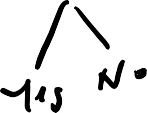 Yes No